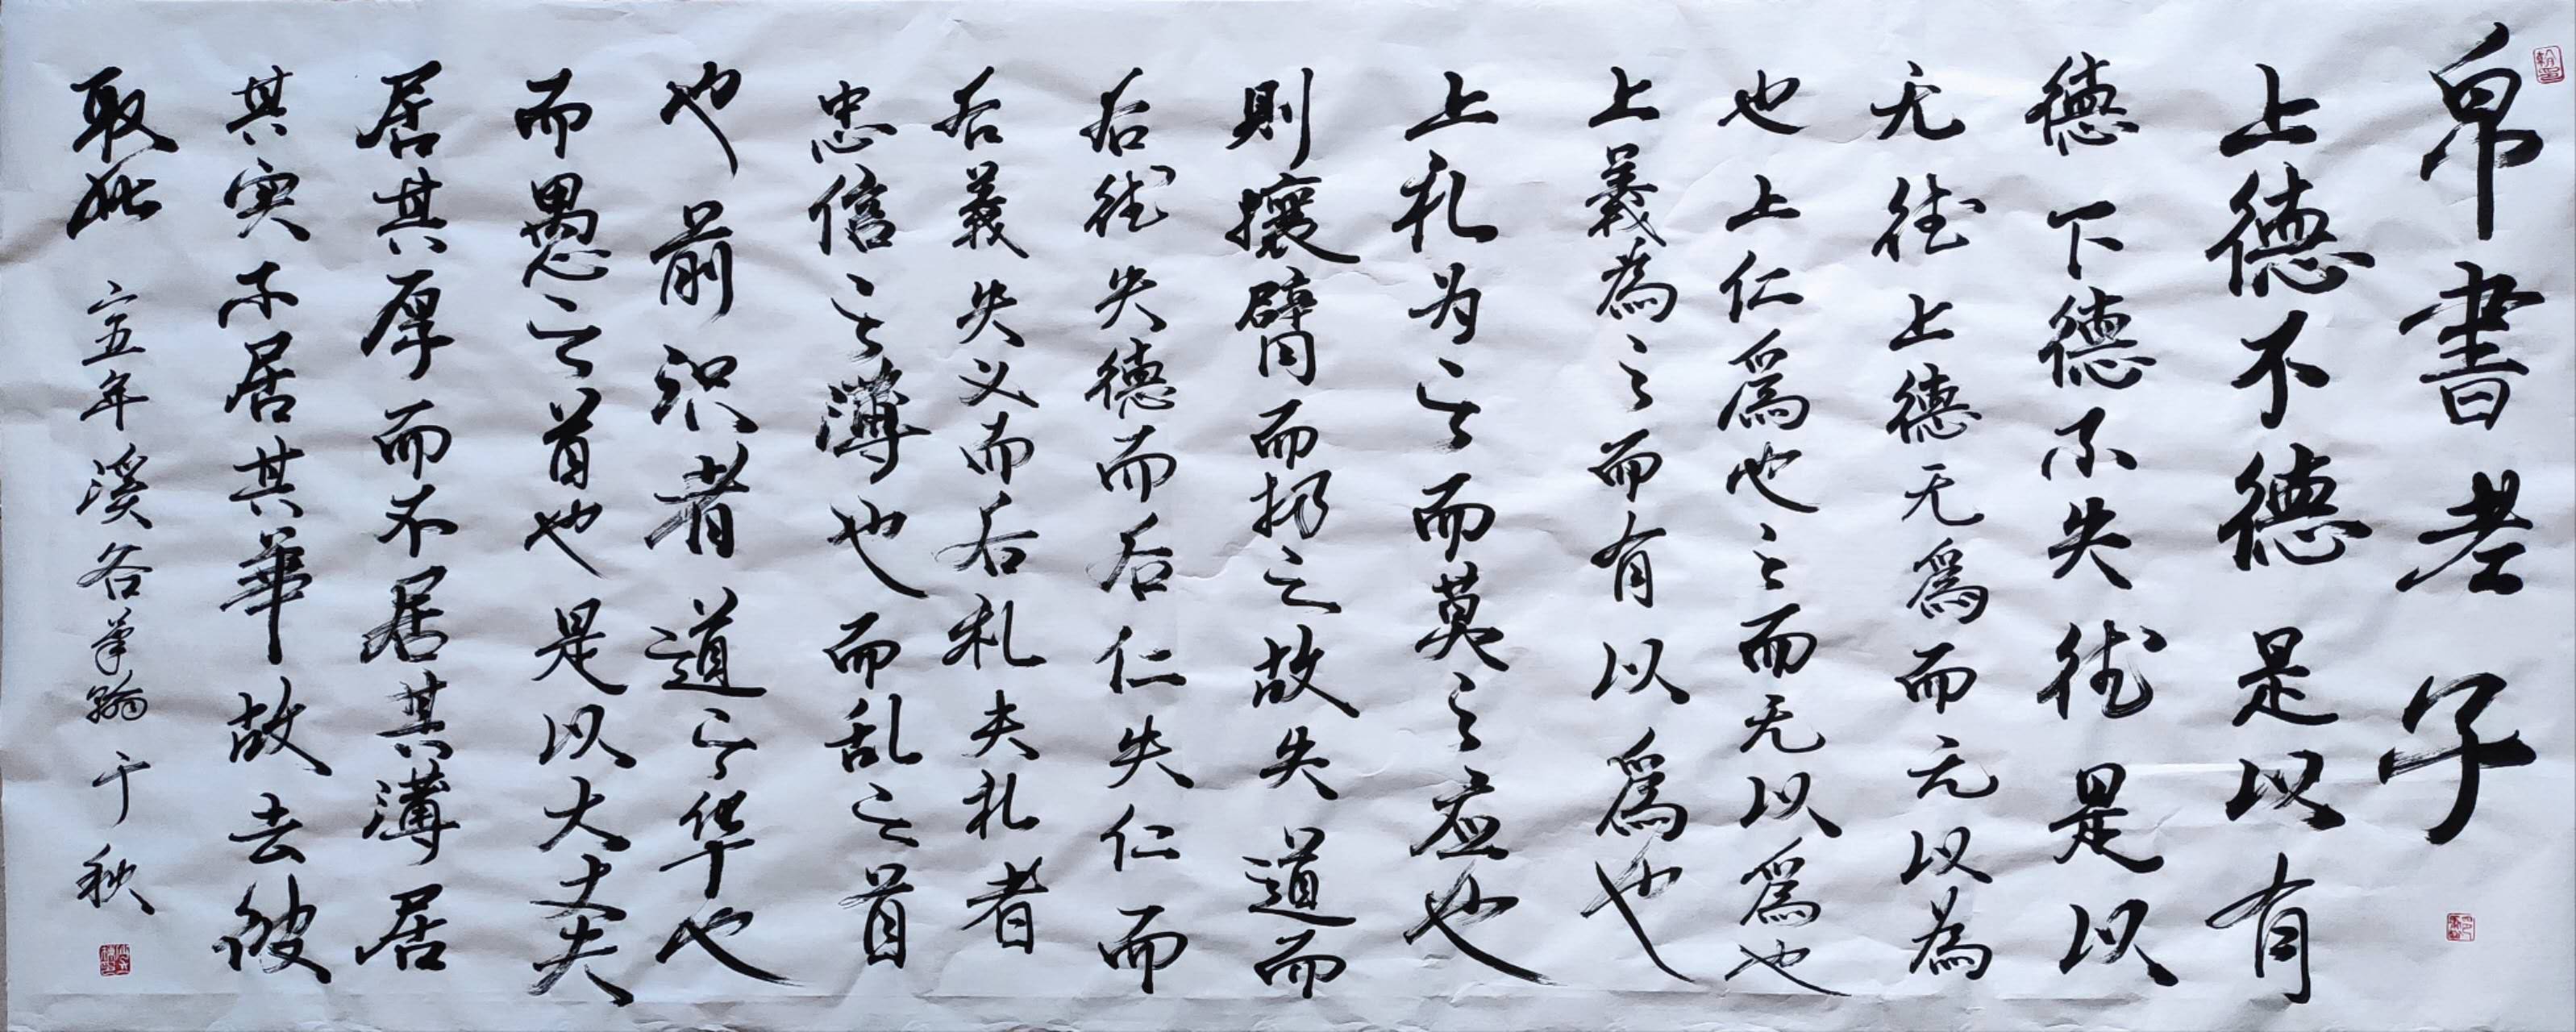 帛書老子
上德不德是以有
德下德不失德是以
无德上德无爲而无以為
也上仁爲也之而无以爲也
上義為之而有以爲也
上礼为之而莫之应也
則攘臂而扔之故失道而
后德失德而后仁失仁而
后義失义而后礼夫礼者
忠信之薄也而乱之首
也前识者道之华也
而愚之首也是以大丈夫
居其厚而不居其薄居
其实不居其華故去彼
取此
五年溪谷筆翰于秋